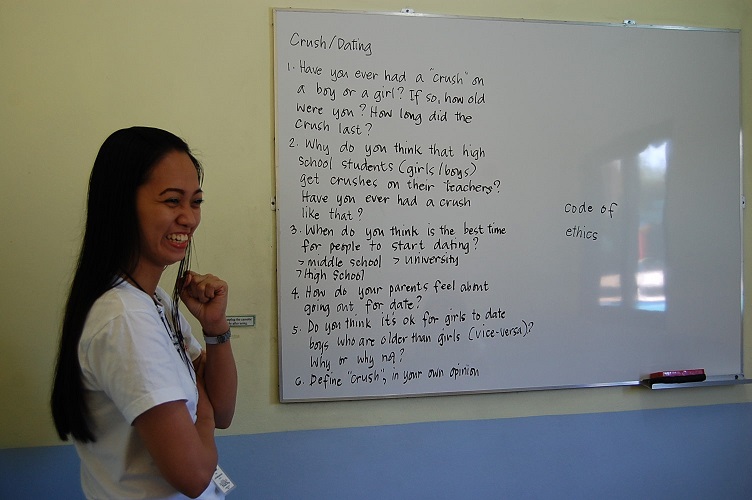 Crush/Dating
1. Have you ever had a "crush" on
a boy or a girl? If so, how old
were you? How long did the
crush last?
2. Why do you think that high
school students (girls/boys)
get crushes on their teachers?
Have you ever had a crush
like that?
3. When do you think is the best time
for people to start dating?
> middle school > university
> High School
4. How do your parents feel about
going out for date?
5. Do you think it's ok for girls to date
boys who are older than girls (vice-versa)?
Why or why not?
6. Define "crush", in your own opinion
code of
ethics